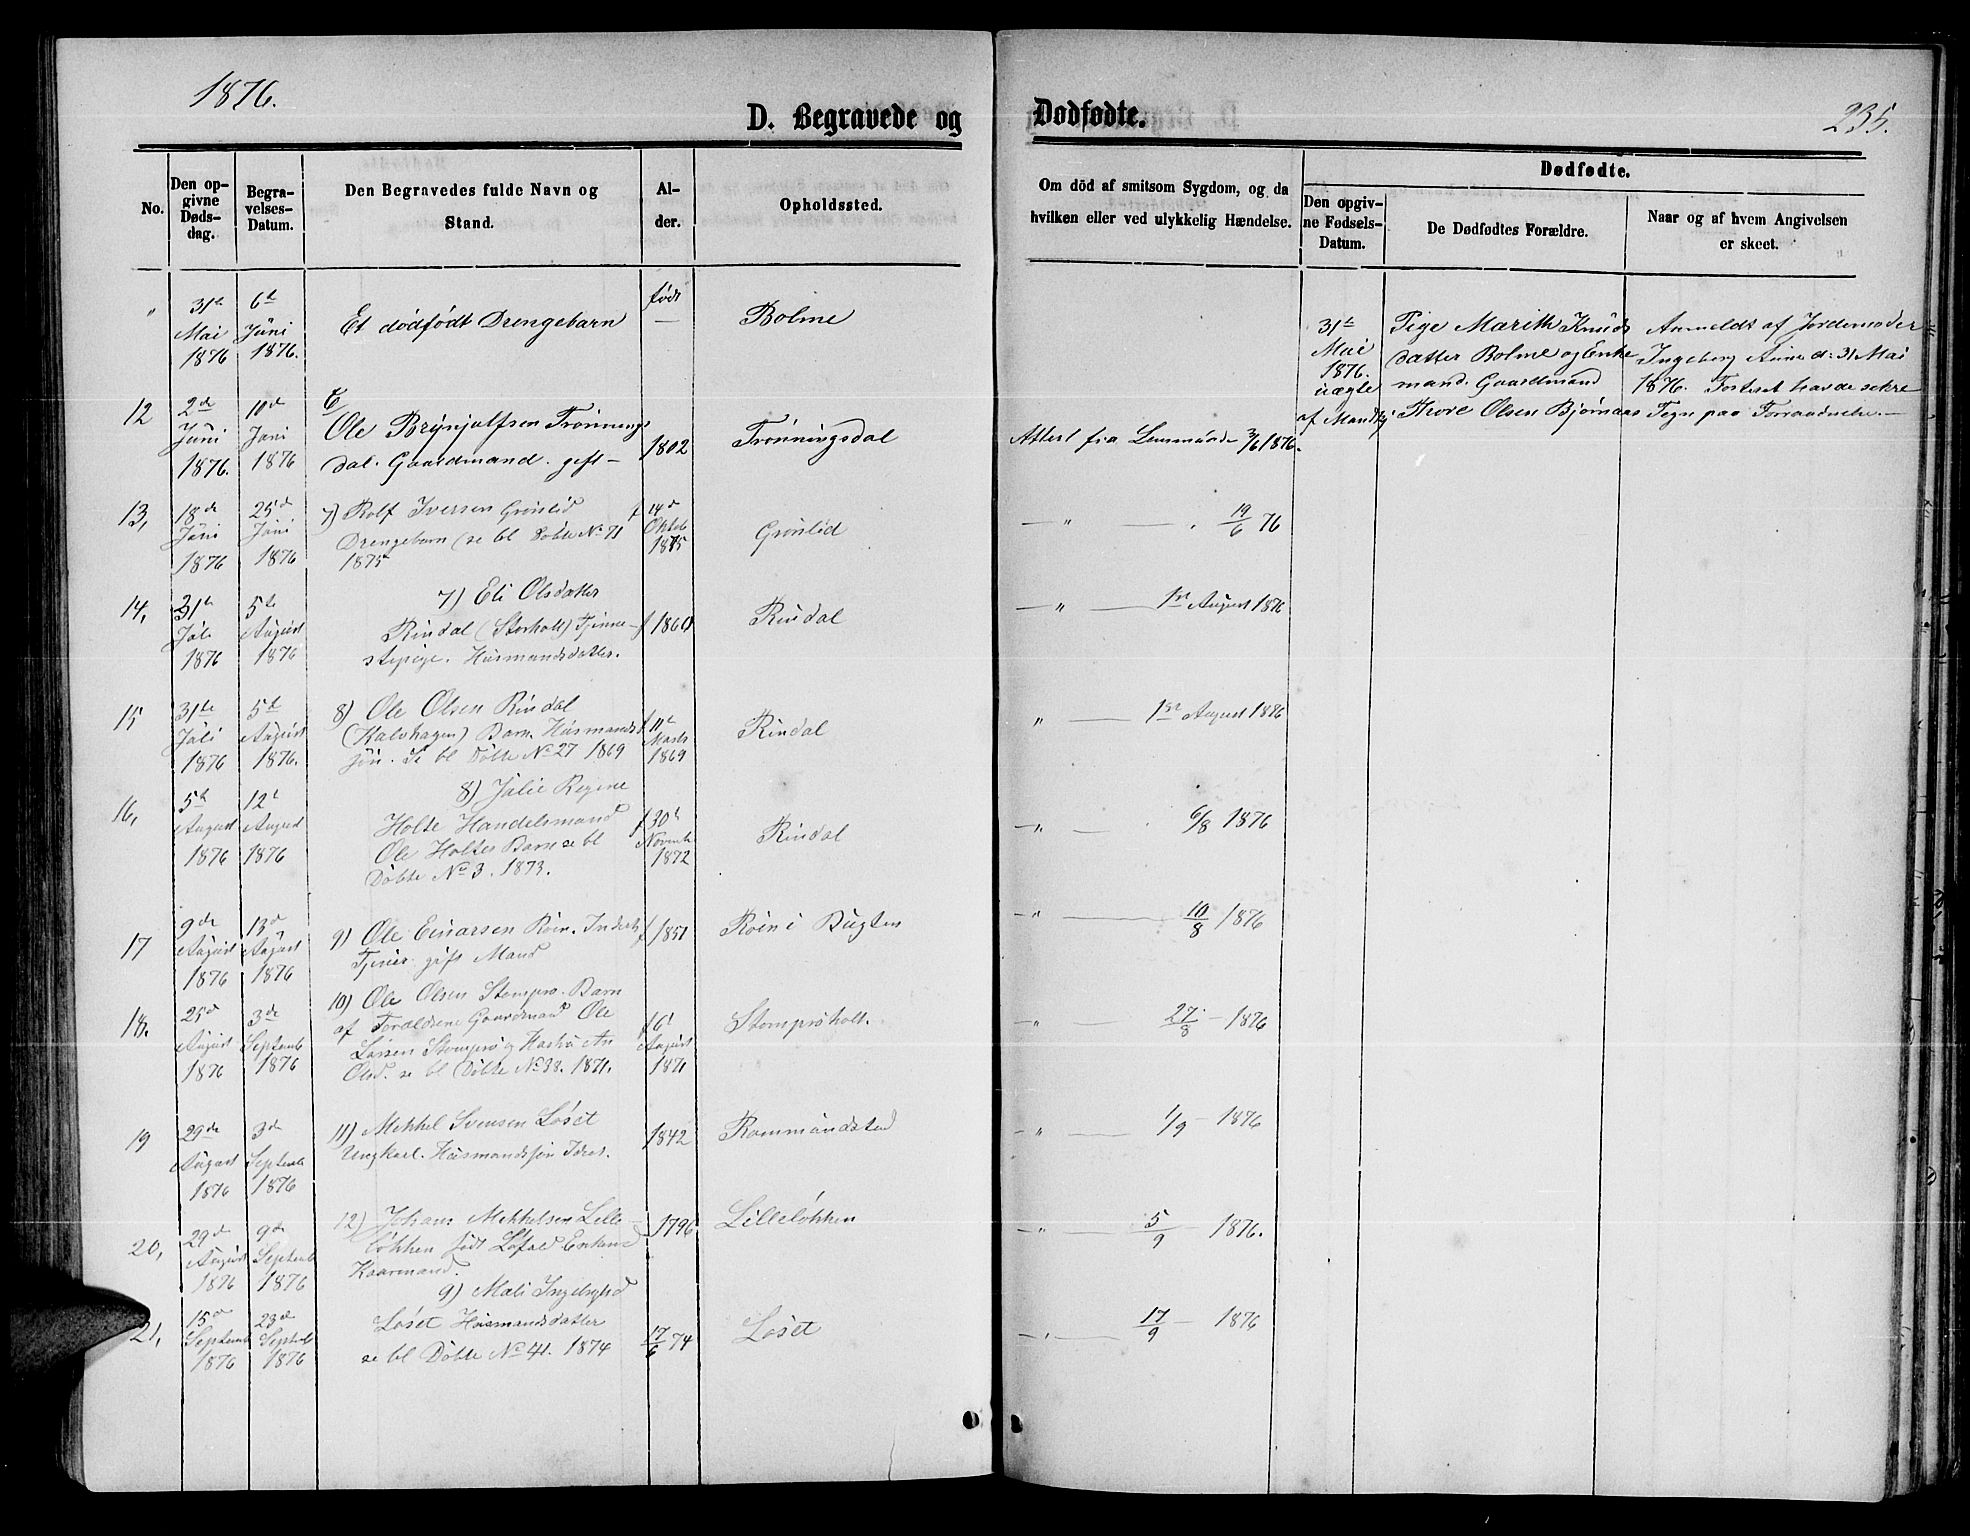 1876.
D. Begravede og
Dødfødte.
235.
No.
Den op-
givne
Døds-
dag.
Begra-
velses-
Datum.
Den Begravedes fulde Navn og
Stand.
Al-
der.
Opholdssted.
Om död af smitsom Sygdom, og da
hvilken eller ved ulykkelig Hændelse.
Dødfødte.
Den opgiv-
ne Fødsels-
Datum.
De Dødfødtes Forældre.
Naar og af hvem Angivelsen
er skeet.
" 31te Mai 1876
6te Juni 1876.
Et dødfødt Drengebarn
født —
Bolme
31te Mai 1876. uægte
Pige Marith Knuds
datter Bolme og Enke
mand. Gaardmand
Thore Olsen Bjørnaas
Anmeldt af Jordemoder
Ingeborg Anne d: 31 Mai
1876. Fosteret havde sikre
Tegn paa Forraadnelse.
12
2de Juni 1876.
10de Juni 1876
6
Ole Brynjulfsen Trønnings
dal. Gaardmand. gift —
1802
Trønningsdal
Attest fra Lensmand 3/6 1876.
13,
18de Juni 1876
25de Juni 1876
7) Rolf Iversen Grønlid
Drengebarn (se bl Døbte No 71
1875
f 14de Oktob 1875
Grønlid
— " — 19/6 76
14,
31te Juli 1876
5te August 1876
7) Eli Olsdatter
Rindal (Storholt) Tjene-
stepige. Husmandsdatter.
f 1860
Rindal
— " — 1ste August 1876
15
31te Juli 1876
5te August 1876.
8) Ole Olsen Rindal
(Kalvhagen) Barn. Husmands
søn. Se bl Døbte No 27 1869
f 11te Marts 1869
Rindal
" — 1ste August 1876
16,
5te August 1876
12te August 1876
8) Julie Regine
Holte Handelsmand
Ole Holtes Barn se bl
Døbte No 3. 1873.
f 30te Novemb 1872
Rindal
— " — 6/8 1876
17
9de August 1876
13de August 1876
9) Ole Einarsen Roen. Inderst
Tjener. gift Mand
f 1851
Roen i Bugten
— " — 10/8 1876
18.
25de August 1876
3de Septemb 1876
10) Ole Olsen Stomprø. Barn
af Forældrene Gaardmand Ole
Larsen Stomprø og Hustru An
Olsd. se bl Døbte No 38. 1871.
f 6te August 1871
Stomprøholt.
— " — 27/8 — 1876
19
29de August 1876
3de Septemb 1876
11) Mekkel Svensen Løset
Ungkarl. Husmandssøn Idres.
1842
Rommundstad
— " — 1/9 — 1876
20,
29de August 1876
9de Septemb 1876
12) Johans Mekkelsen Lille-
løkken født Løfald Enkemd
Kaarmand.
1796
Lilleløkken
— " — 5/9 — 1876.
21,
15de Septemb 1876
23de Septbr 1876
9) Mali Ingebrigtsd
Løset Husmandsdatter
se bl Døbte No 41. 1874
17/6 74
Løset
— " — 17/9 — 1876